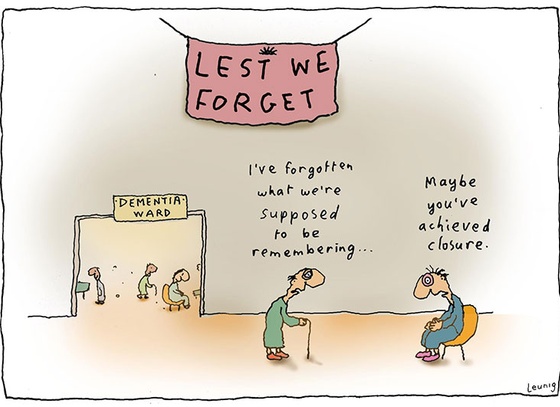 LEST WE
FORGET
DEMENTIA
WARD
I've forgotten
what we're
supposed
to be
remembering...
Maybe
you've
achieved
closure.
Leunig